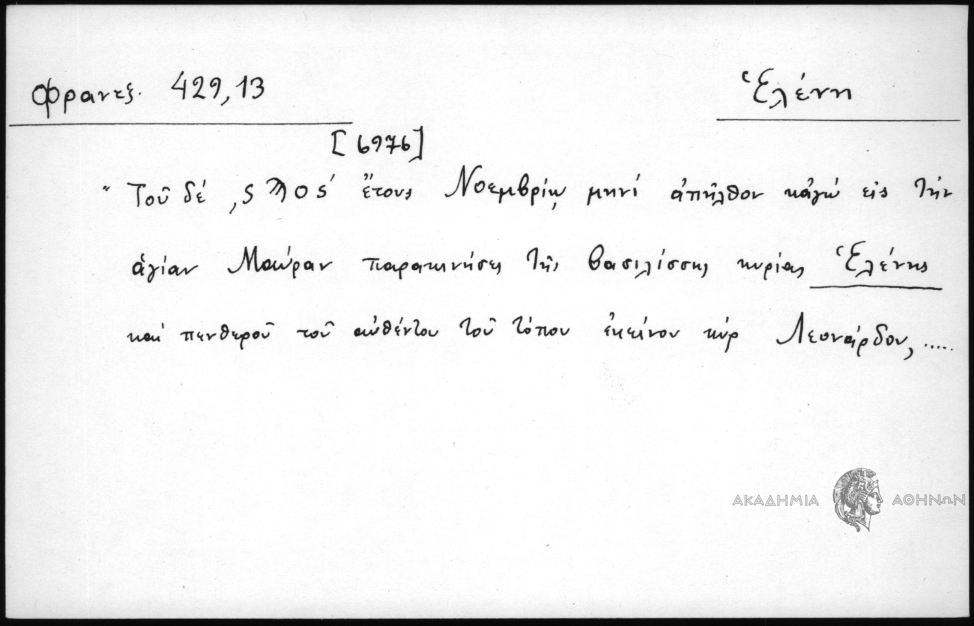 Φραντζ. 429,13
Ἑλένη
[6976]
" Τοῦ δέ ͵ςϡος΄ ἔτους Νοεμβρίῳ μηνί ἀπῆλθον κἀγώ εἰς τήν
ἁγίαν Μαύραν παρακινήσει τῆς βασιλίσσης κυρίας Ἑλένης
καί πενθεροῦ τοῦ αὐθέντου τοῦ τόπου ἐκείνου κύρ Λεονάρδου, .....
ΑΚΑΔΗΜΙΑ ΑΘΗΝΩΝ